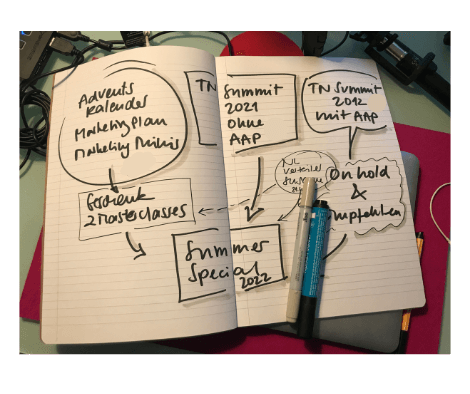 Advents
Kalender
Marketing Plan
Marketing Minis
Geschenk
2 Masterclasses
TN
Summit
2021
Ohne
AAP
TN Summit
2012
mit AAP
NL
verteiler
On hold
&
empfehlen
Summer
Special
2022